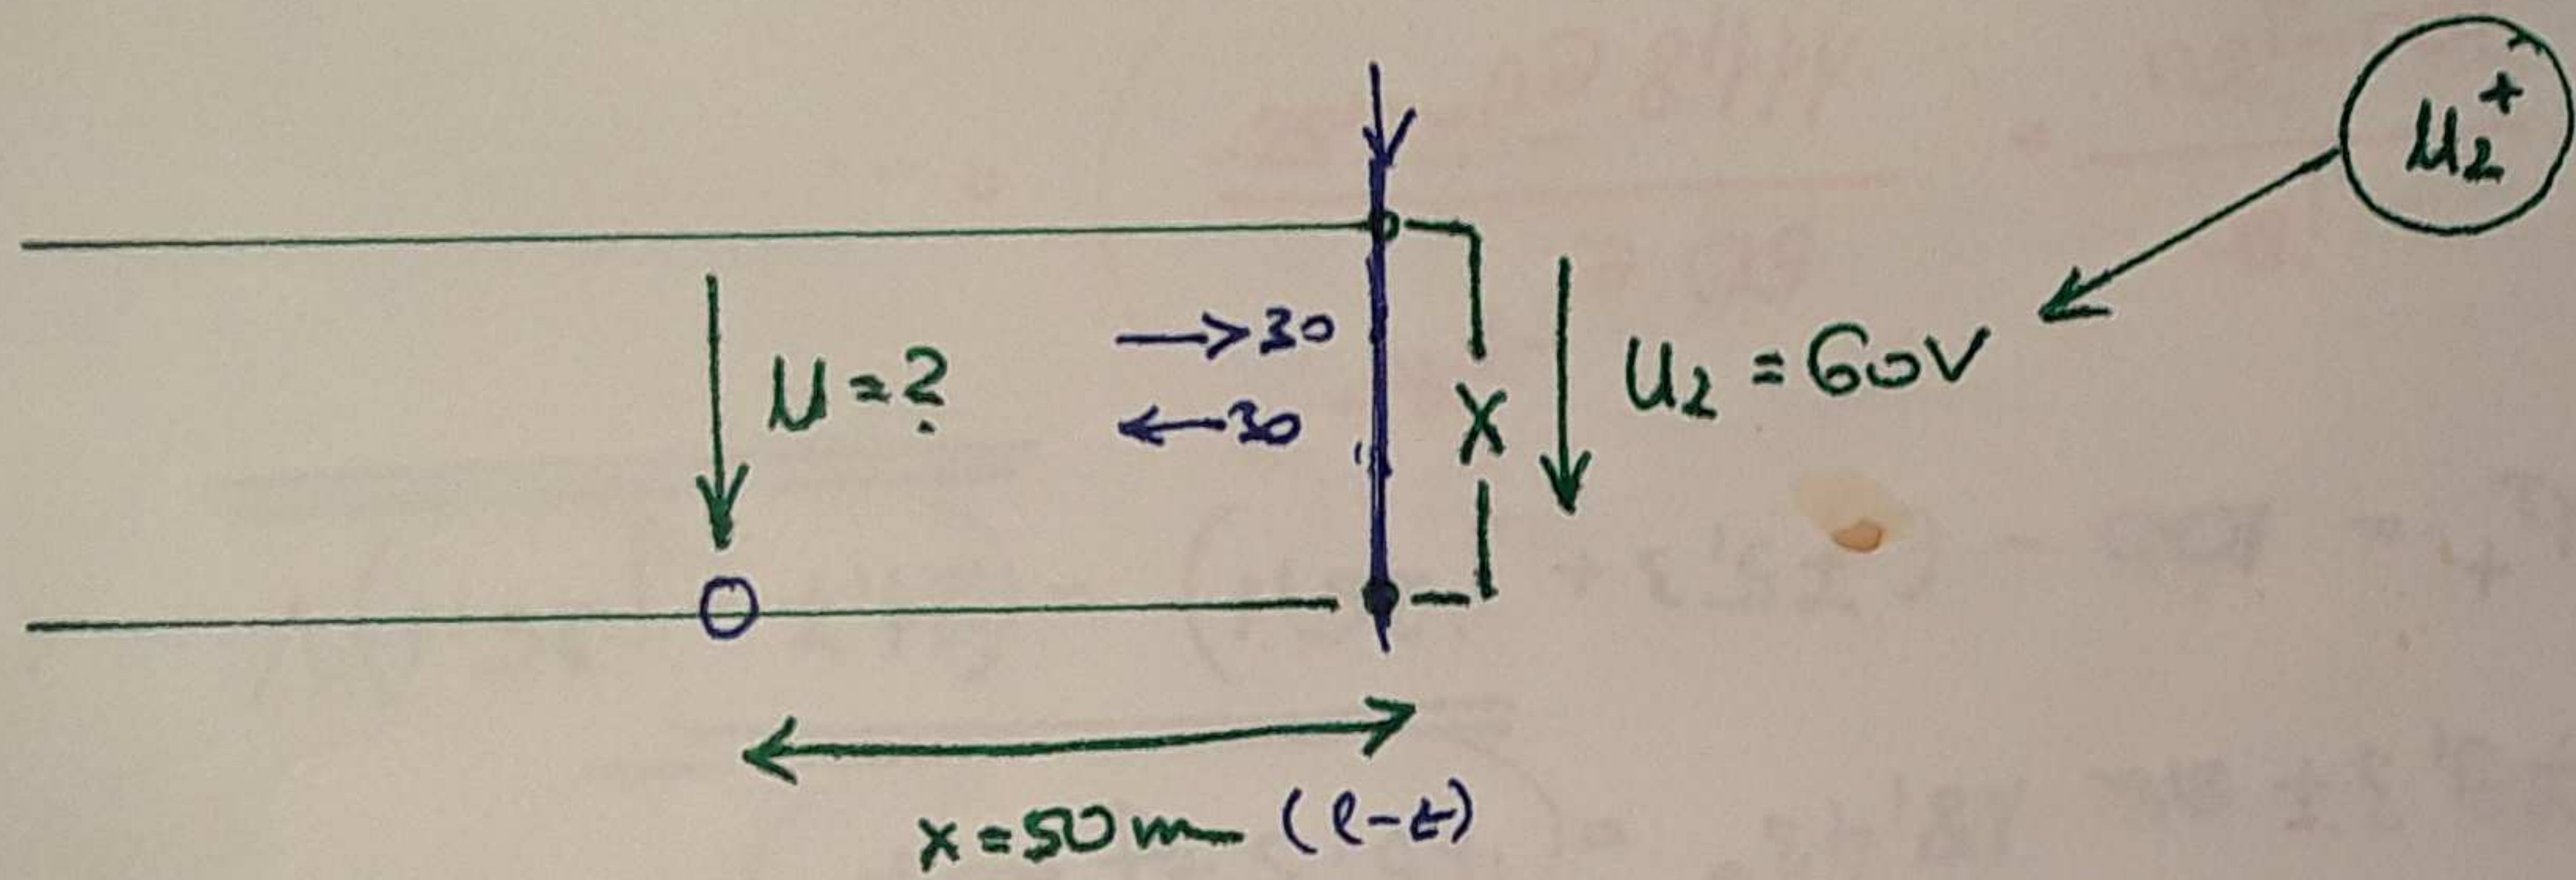 U₂⁺
→30
U=?
←30
X
U₂ = 60V
x=50m (l-z)